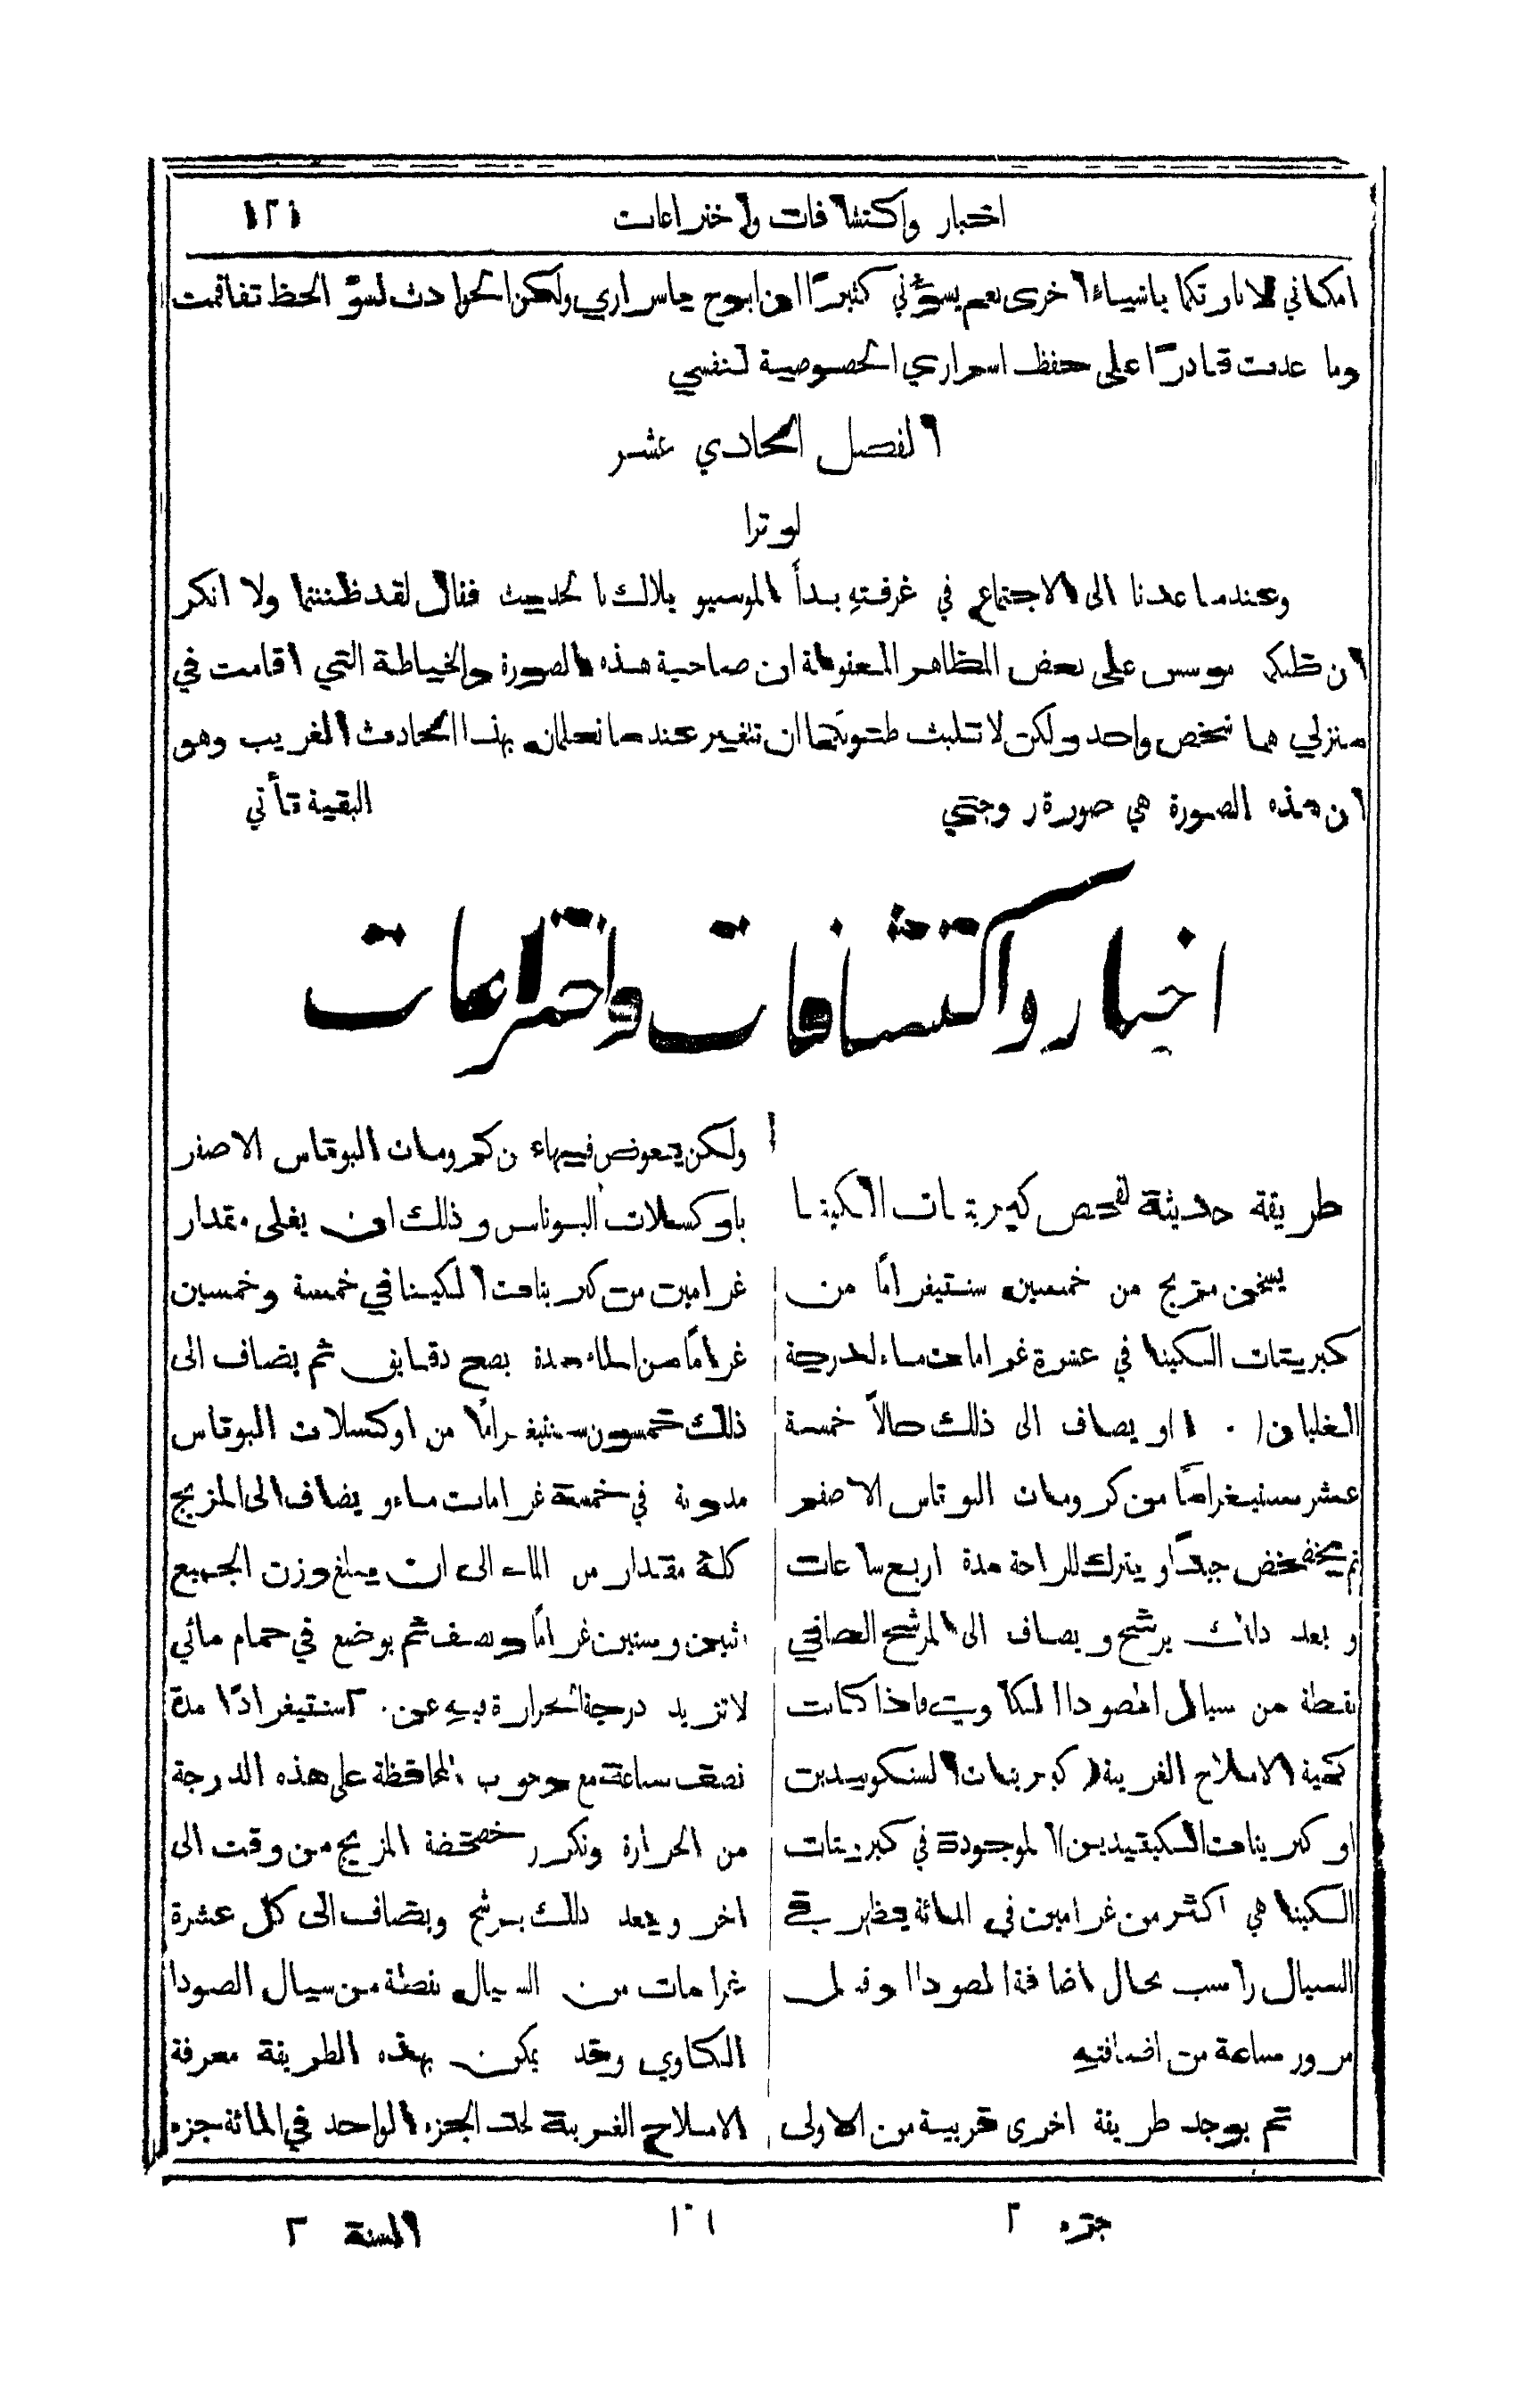 اخبار واكتشافات واختراعات ١٢١
امكاني لاباركما باشياء اخرى نعم يسؤني كثيرًا ان ابوح باسراري ولكن الحوادث لسوّ الحظ تفاقمت
وما عدت قادرًا على حفظ اسراري الخصوصية لنفسي
الفصل الحادي عشر
لوترا
وعندما عدنا الى الاجتماع في غرفتهِ بدأَ الموسيو بلاك بالحديث فقال لقد ظننتما ولا انكر
ان ظنكما موسس على بعض المظاهر المعقولة ان صاحبة هذه الصورة والخياطة التي اقامت في
منزلي هما شخص واحد ولكن لا تلبث ظنونكما ان تتغير عندما تعلمان بهذا الحادث الغريب وهو
ان هذه الصورة هي صورة زوجتي البقية تأتي
اخبار واكتشافات واختراعات
طريقة حديثة لفحص كبريتات الكينا
يسخن مزيج من خمسين سنتيغرامًا من
كبريتات الكينا في عشرة غرامات ماء لدرجة
الغليان (١٠٠) ويضاف الى ذلك حالاً خمسة
عشر سنتيغرامًا من كرومات البوتاس الاصفر
ثم يخضخض جيدًا ويترك للراحة مدة اربع ساعات
وبعد ذلك يرشح ويضاف الى المرشح الصافي
نقطة من سيال الصودا الكاوي فاذا كانت
كمية الاملاح الغريبة (كبريتات السنكونيدين
او كبريتات الكينيدين) الموجودة في كبريتات
الكينا هي اكثر من غرامين في المائة يظهر في
السيال راسب بحال اضافة الصودا او قبل
مرور ساعة من اضافتهِ
ثم يوجد طريقة اخرى قريبة من الاولى
ولكن يعوض فيها عن كرومات البوتاس الاصفر
باوكسلات البوتاس وذلك ان يغلى مقدار
غرامين من كبريتات الكينا في خمسة وخمسين
غرامًا من الماء مدة بضع دقايق ثم يضاف الى
ذلك خمسون سنتيغرامًا من اوكسلات البوتاس
مذوبة في خمسة غرامات ماء ويضاف الى المزيج
كلهِ مقدار من الماء الى ان يبلغ وزن الجميع
اثنين وستين غرامًا ونصف ثم يوضع في حمام مائي
لا تزيد درجة الحرارة فيهِ عن ٢٠ سنتيغرادًا مدة
نصف ساعة مع وجوب المحافظة على هذه الدرجة
من الحرارة وتكرر خضخضة المزيج من وقت الى
اخر وبعد ذلك يرشح ويضاف الى كل عشرة
غرامات من السيال نقطة من سيال الصودا
الكاوي وقد يمكن بهذه الطريقة معرفة
الاملاح الغريبة لحد الجزء الواحد في المائة جزء
جزء ٢ السنة ٢